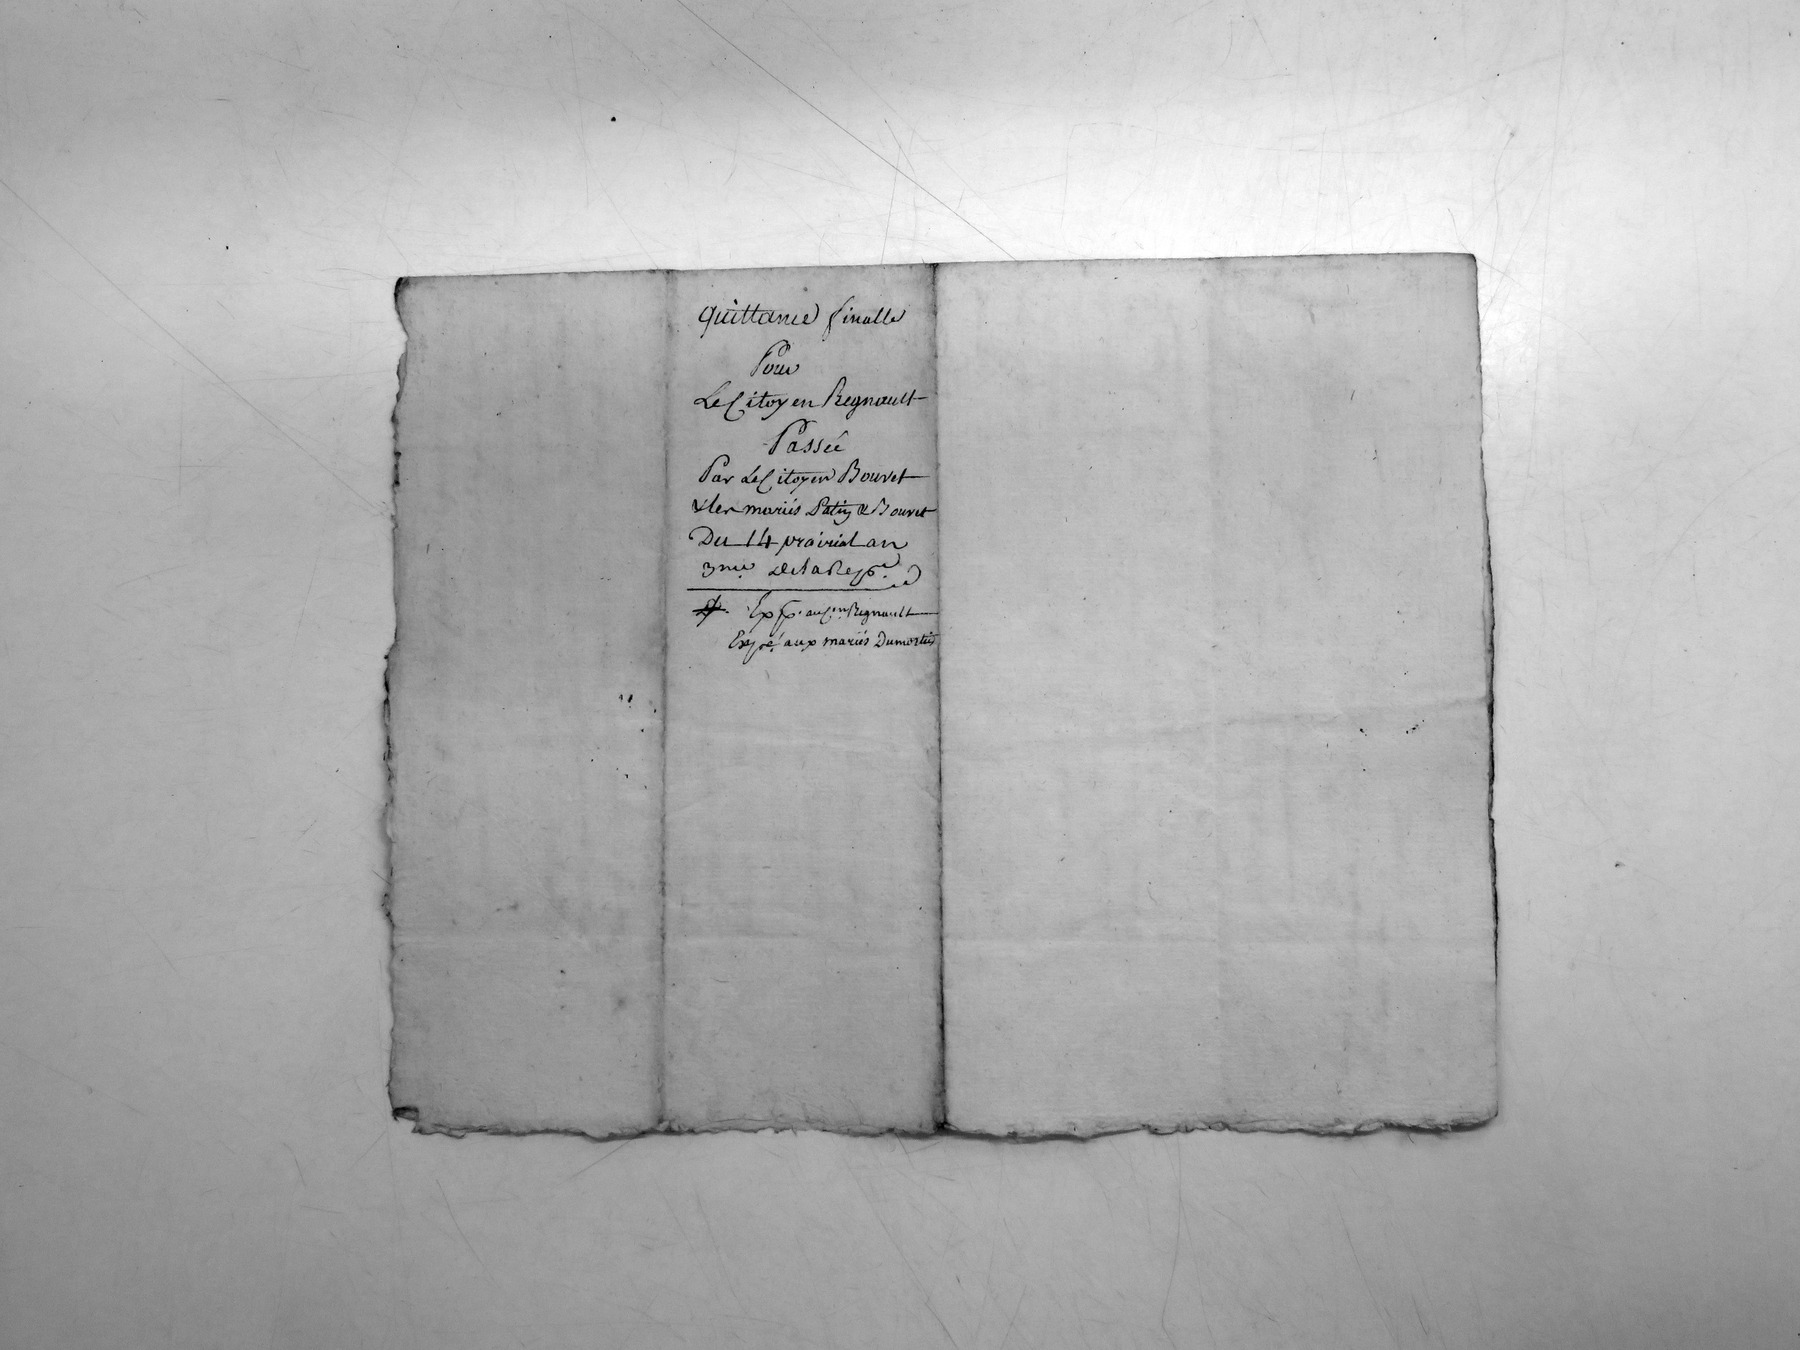 quittance finalle
Pour
Le Citoyen Regnault
Passée
Par Le Citoyen Bouvet
& les mariés & Bouvet
Du 14 prairial an
3me. De la Rep.
au Cen. Regnault
Expé. aux mariés Dumortier